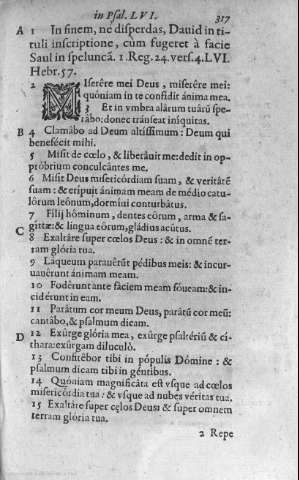 in Psal. LVI.
317
A 1 In finem, ne disperdas, Dauid in ti-
tuli inscriptione, cum fugeret à facie
Saul in speluncã. 1. Reg. 24. vers. 4. LVI.
Hebr. 57.
2 MIserêre mei Deus, miserêre mei:
quóniam in te confidit ánima mea.
3 Et in vmbra alárum tuárũ spe-
rábo: donec tránseat iníquitas.
B 4 Clamábo ad Deum altíssimum: Deum qui
benefécit mihi.
5 Misit de cœlo, & liberáuit me: dedit in op-
próbrium conculcántes me.
6 Misit Deus misericórdiam suam, & veritátẽ
suam: & eripuit ánimam meam de médio catu-
lórum leónum, dormiui conturbátus.
7 Filij hóminum, dentes eórum, arma & sa-
C gittæ: & lingua eórum, gládius acútus.
8 Exaltáre super cœlos Deus: & in omnẽ ter-
ram glória tua.
9 Láqueum parauérũt pédibus meis: & incur-
uauérunt ánimam meam.
10 Fodérunt ante fáciem meam fóueam: & in-
cidérunt in eam.
11 Parátum cor meum Deus, parátũ cor meũ:
cantábo, & psalmum dicam.
D 12 Exúrge glória mea, exúrge psaltériũ & ci-
thara: exúrgam dilúculò.
13 Confitébor tibi in pópulis Dómine: &
psalmum dicam tibi in géntibus.
14 Quóniam magnificáta est vsque ad cœlos
misericórdia tua: & vsque ad nubes véritas tua.
15 Exaltáre super cęlos Deus: & super omnem
terram glória tua.
2 Repe